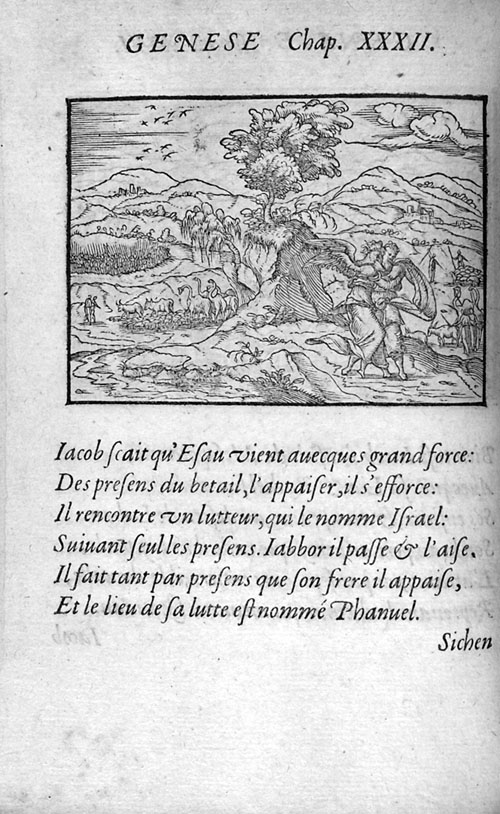 GENESE Chap. XXXII.
Iacob scait qu'Esau vient auecques grand force:
Des presens du betail, l'appaiser, il s'efforce:
Il rencontre vn lutteur, qui le nomme Israel:
Suiuant seul les presens. Iabbor il passe & l'aise.
Il fait tant par presens que son frere il appaise,
Et le lieu de sa lutte est nommé Phanuel.
Sichen